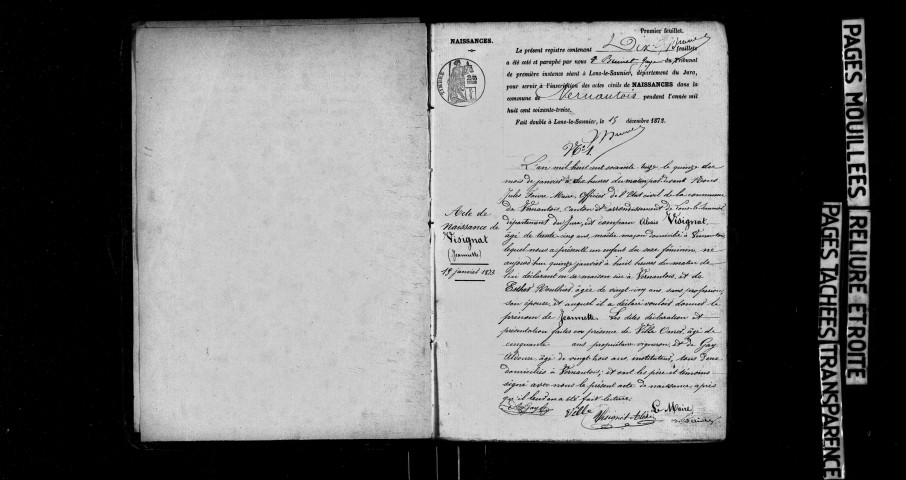 Premier feuillet.
NAISSANCES.
Le présent registre contenant Dix feuillets
a été coté et paraphé par nous Brunet du Tribunal
de première instance séant à Lons-le-Saunier, département du Jura,
pour servir à l'inscription des actes civils de NAISSANCES dans la
commune de Vernantois pendant l'année mil
huit cent soixante-treize.
Fait double à Lons-le-Saunier, le 15 décembre 1872.
N° 1.
Acte de
Naissance de
Visignat
(Jeannette)
15 janvier 1873
L'an mil huit cent soixante treize le quinze du
mois de janvier à dix heures du matin par devant Nous
Jules Faivre Maire, Officier de l'Etat civil de la commune
de Vernantois, canton et arrondissement de Lons-le-Saunier
département du Jura, est comparu Alexis Visignat,
âgé de trente cinq ans, maître maçon domicilié à Vernantois
lequel nous a présenté un enfant du sexe féminin, né
aujourd'hui quinze janvier à huit heures du matin de
lui déclarant en sa maison sise à Vernantois, et de
Esther âgée de vingt cinq ans sans profession
son épouse, et auquel il a déclaré vouloir donner le
prénom de Jeannette. Les dites déclaration et
présentation faites en présence de Ville âgé de
cinquante ans propriétaire vigneron, et de Gay
âgé de vingt trois ans, instituteur, tous deux
domiciliés à Vernantois; et ont les père et témoins
signé avec nous le présent acte de naissance après
qu'il leur en a été fait lecture.
Ville Visignat Alexis Le Maire
PAGES MOUILLEES
RELIURE ETROITE
PAGES TACHEES
TRANSPARENCE